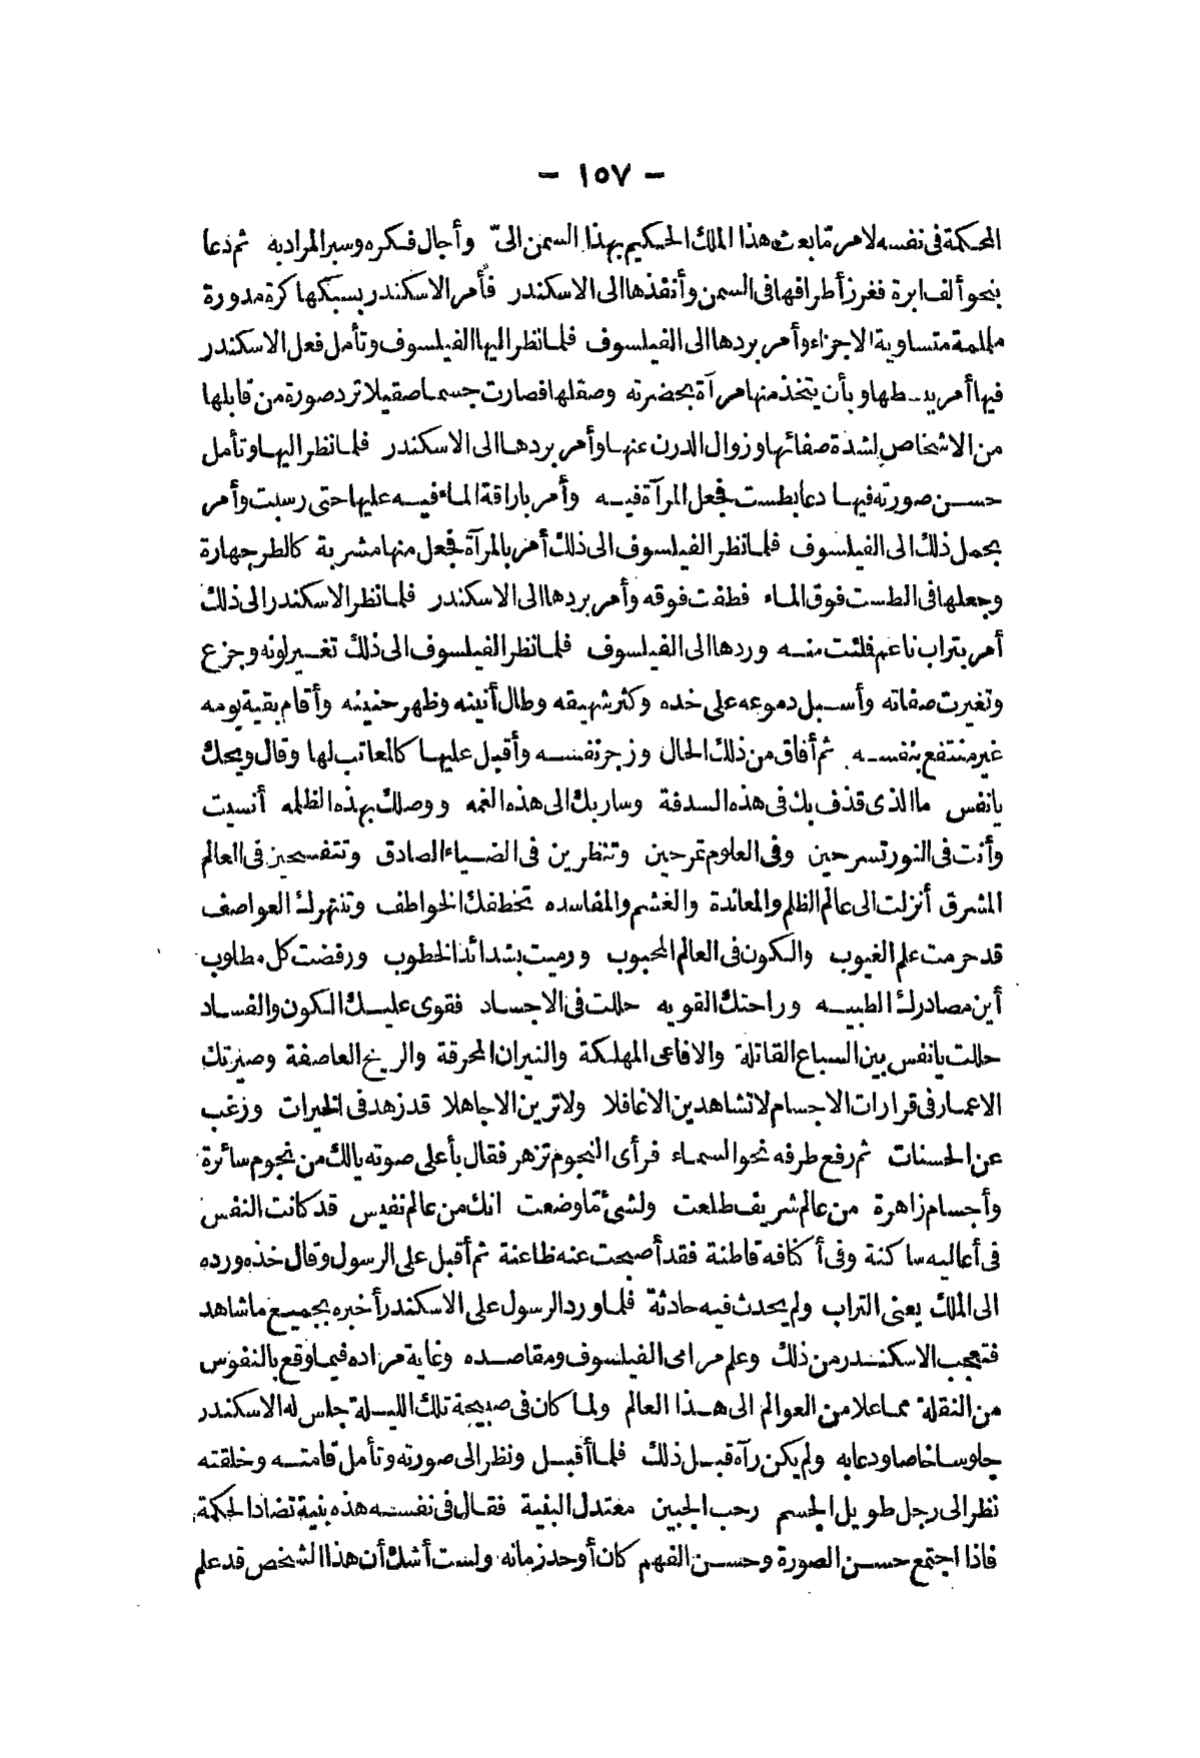 - ١٥٧ -
المحكمة فى نفسه لامر تما بعث هذا الملك الحكيم بهذا السمن الىّ وأجال فكره وسبر المراد به ثم دعا
بنحو ألف ابرة فغرز أطرافها فى السمن وأنفذها الى الاسكندر فأمر الاسكندر بسبكها كرة مدورة
ململمة متساوية الاجزاء وأمر بردها الى الفيلسوف فلما نظر اليها الفيلسوف وتأمل فعل الاسكندر
فيها أمر ببسطها وبأن يتخذ منها مرآة بحضرته وصقلها فصارت جسما صقيلا ترد صورة من قابلها
من الاشخاص لشدة صفائها وزوال الدرن عنها وأمر بردها الى الاسكندر فلما نظر اليها وتأمل
حسن صورته فيها دعا بطست فجعل المرآة فيه وأمر باراقة الماء فيه عليها حتى رسبت وأمر
بحمل ذلك الى الفيلسوف فلما نظر الفيلسوف الى ذلك أمر بالمرآة فجعل منها مشربة كالطرجهارة
وجعلها فى الطست فوق الماء فطفت فوقه وأمر بردها الى الاسكندر فلما نظر الاسكندر الى ذلك
أمر بتراب ناعم فلئت منه وردها الى الفيلسوف فلما نظر الفيلسوف الى ذلك تغير لونه وجزع
وتغيرت صفاته وأسبل دموعه على خده وكثر شهيقه وطال أنينه وظهر حنينه وأقام بقية يومه
غير منتفع بنفسه ثم أفاق من ذلك الحال وزجر نفسه وأقبل عليها كالمعاتب لها وقال ويحك
يانفس ما الذى قذف بك فى هذه السدفة وسار بك الى هذه الغمه ووصلك بهذه الظلمه أنسيت
وأنت فى النور تسرحين وفى العلوم تمرحين وتنظرين فى الضياء الصادق وتتفسحين فى العالم
المشرق أنزلت الى عالم الظلم والمعاندة والغشم والمفاسده تخطفك الخواطف وتنتهرك العواصف
قد حرمت علم الغيوب والكون فى العالم المحبوب ورميت بشدائد الخطوب ورفضت كل مطلوب
أين مصادرك الطيبه وراحتك القويه حللت فى الاجساد فقوى عليك الكون والفساد
حللت يانفس بين السباع القاتلة والافاعى المهلكة والنيران المحرقة والريح العاصفة وصيرتك
الاعمار فى قرارات الاجسام لا تشاهدين الا غافلا ولا ترين الا جاهلا قد زهد فى الخيرات ورغب
عن الحسنات ثم رفع طرفه نحو السماء فرأى النجوم تزهر فقال بأعلى صوته يالك من نجوم سائرة
وأجسام زاهرة من عالم شريف طلعت ولشئ تما وضعت انك من عالم نفيس قد كانت النفس
فى أعاليه ساكنة وفى أكنافه قاطنة فقد أصبحت عنه ظاعنة ثم أقبل على الرسول وقال خذه ورده
الى الملك يعنى التراب ولم يحدث فيه حادثة فلما ورد الرسول على الاسكندر أخبره بجميع ما شاهد
فتعجب الاسكندر من ذلك وعلم مرامى الفيلسوف ومقاصده وغاية مراده فيما وقع بالنفوس
من النقلة مما علا من العوالم الى هذا العالم ولما كان فى صبيحة تلك الليلة جلس له الاسكندر
جلوسا خاصا ودعا به ولم يكن رآه قبل ذلك فلما أقبل ونظر الى صورته وتأمل قامته وخلقته
نظر الى رجل طويل الجسم رحب الجبين معتدل البنية فقال فى نفسه هذه بنية تضاد الحكمة
فاذا اجتمع حسن الصورة وحسن الفهم كان أوحد زمانه ولست أشك أن هذا الشخص قد علم